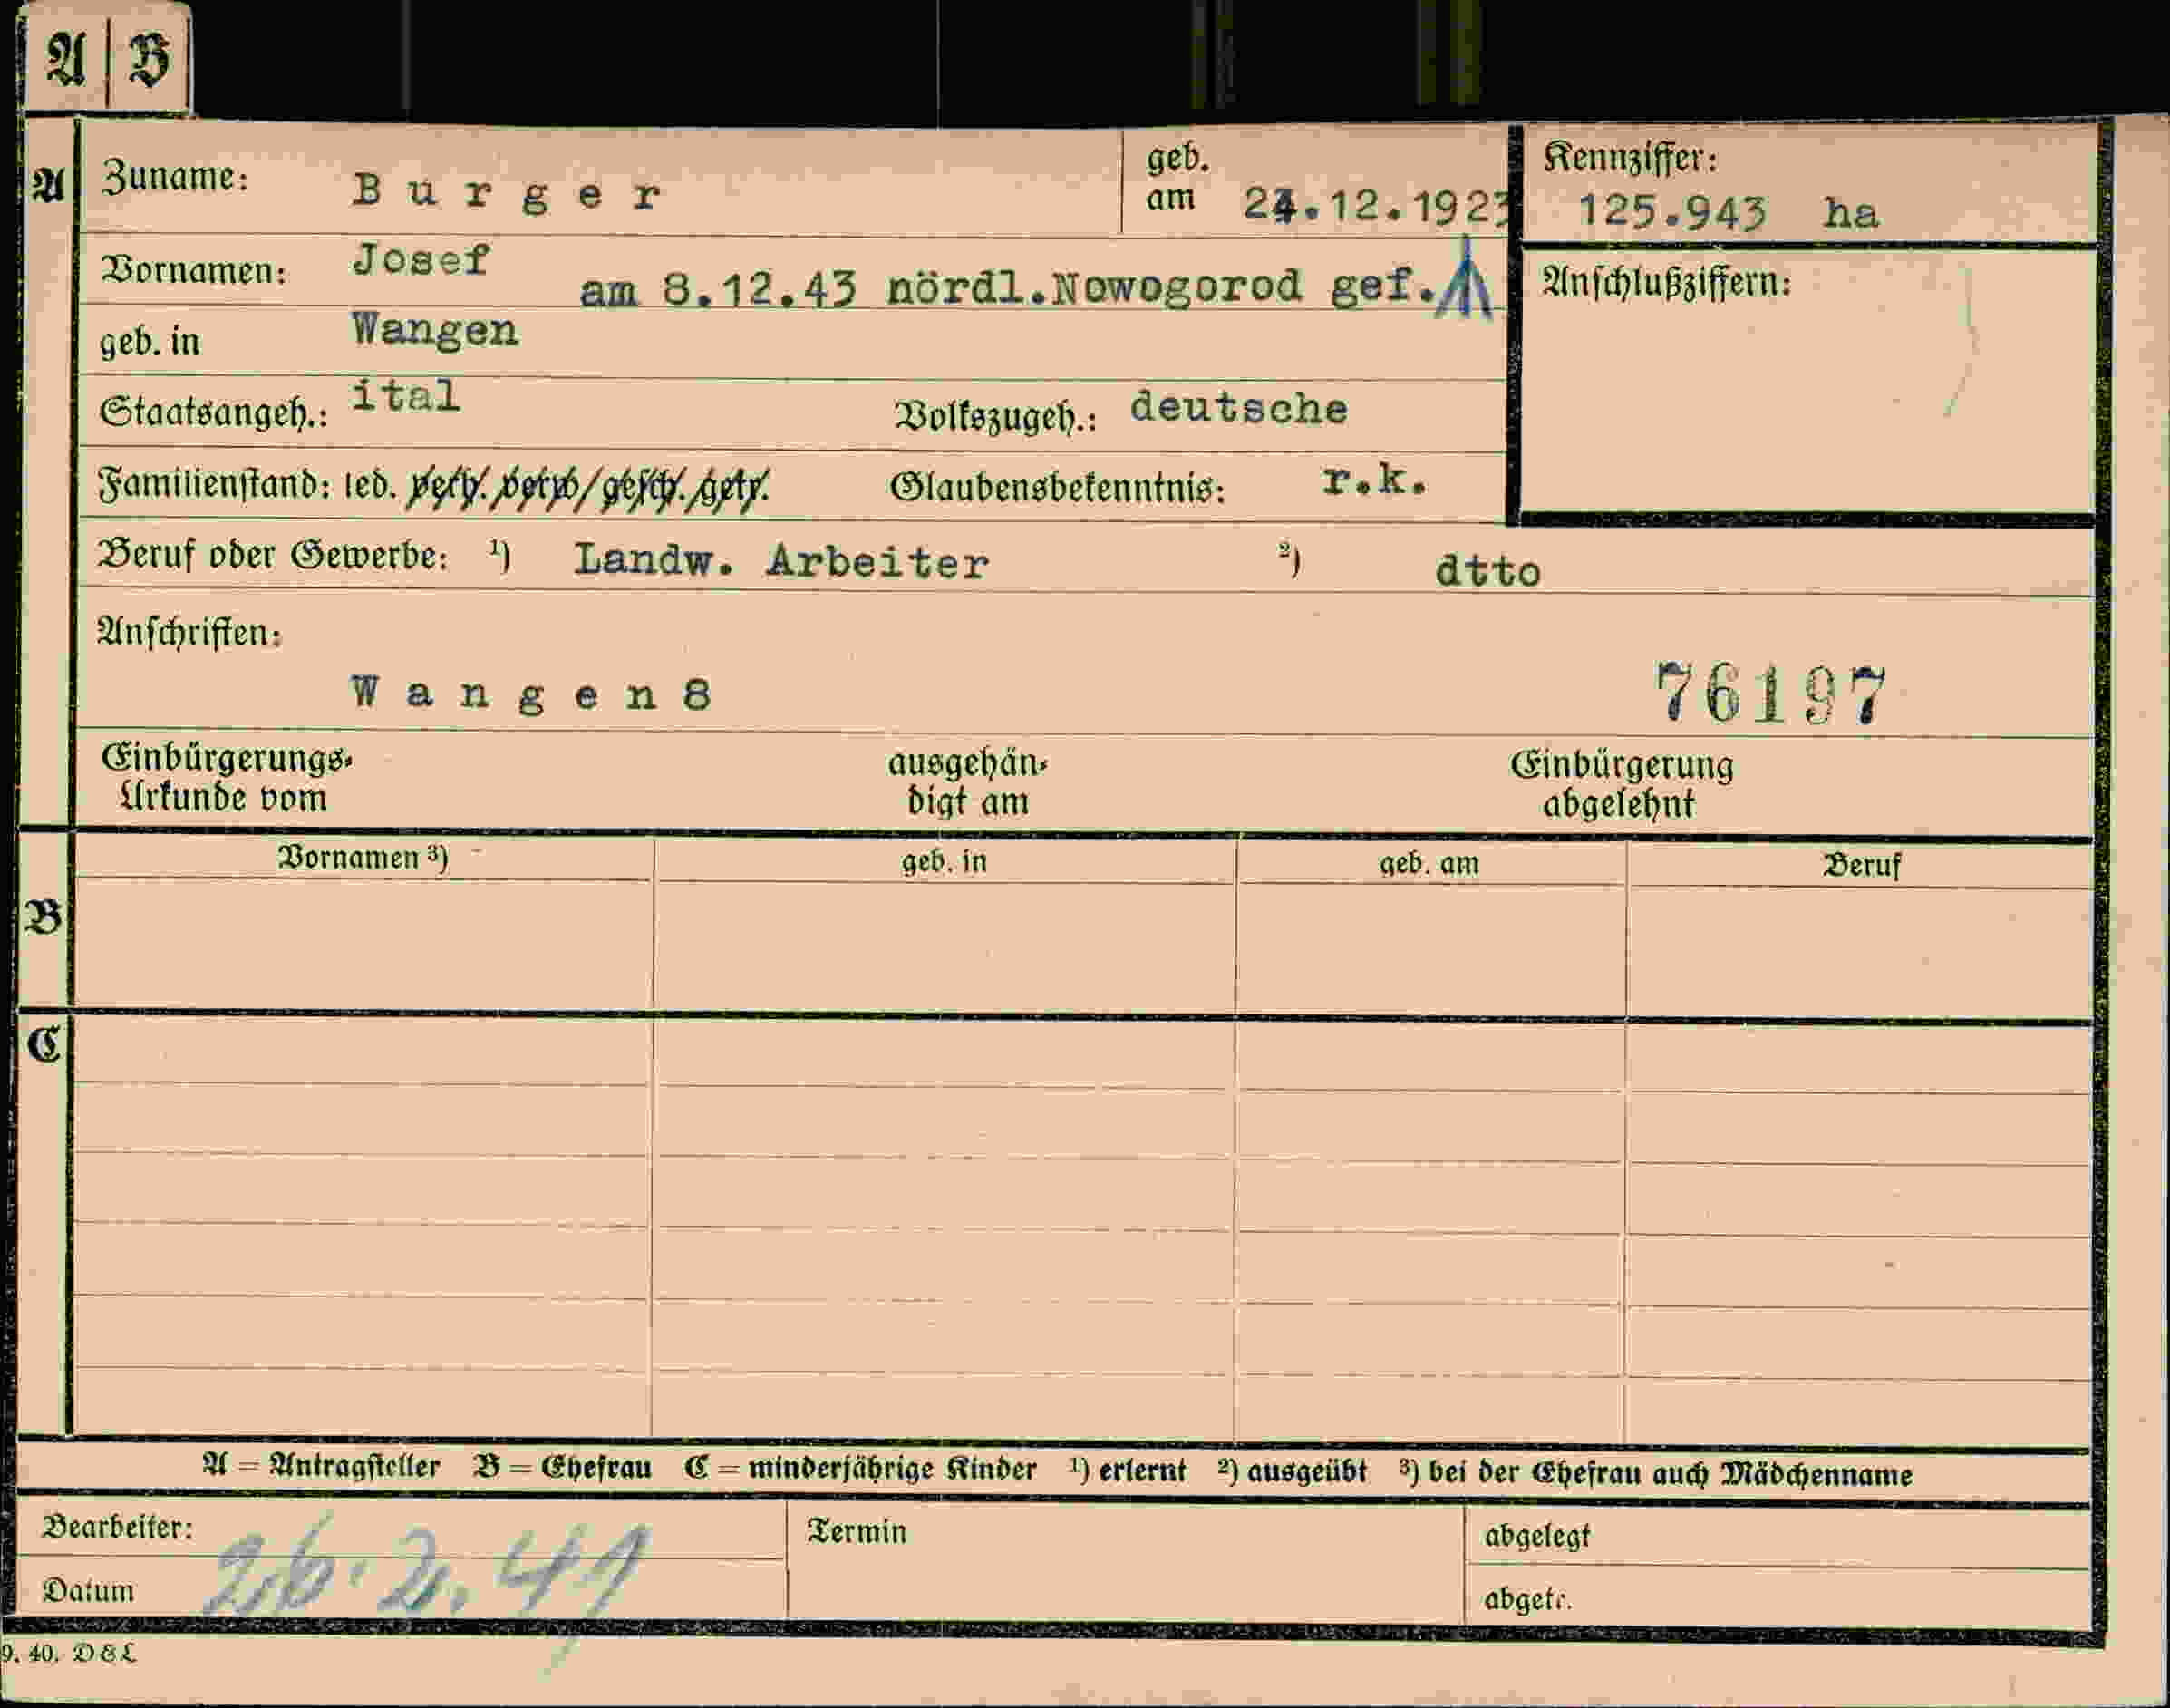 A B
A Zuname: Burger geb. am 24.12.1923 Kennziffer: 125.943 ha
Vornamen: Josef am 8.12.43 nördl.Nowogorod gef. Anschlußziffern:
geb. in Wangen
Staatsangeh.: ital Volkszugeh.: deutsche
Familienstand: led. verh. verw. gesch. getr. Glaubensbekenntnis: r.k.
Beruf oder Gewerbe: ¹) Landw. Arbeiter ²) dtto
Anschriften:
Wangen 8 76197
Einbürgerungs- ausgehän- Einbürgerung
Urkunde vom digt am abgelehnt
Vornamen ³) geb. in geb. am Beruf
B
C
A = Antragsteller B = Ehefrau C = minderjährige Kinder ¹) erlernt ²) ausgeübt ³) bei der Ehefrau auch Mädchenname
Bearbeiter: Termin abgelegt
Datum 26.2.41 abgetr.
9. 40. D & L